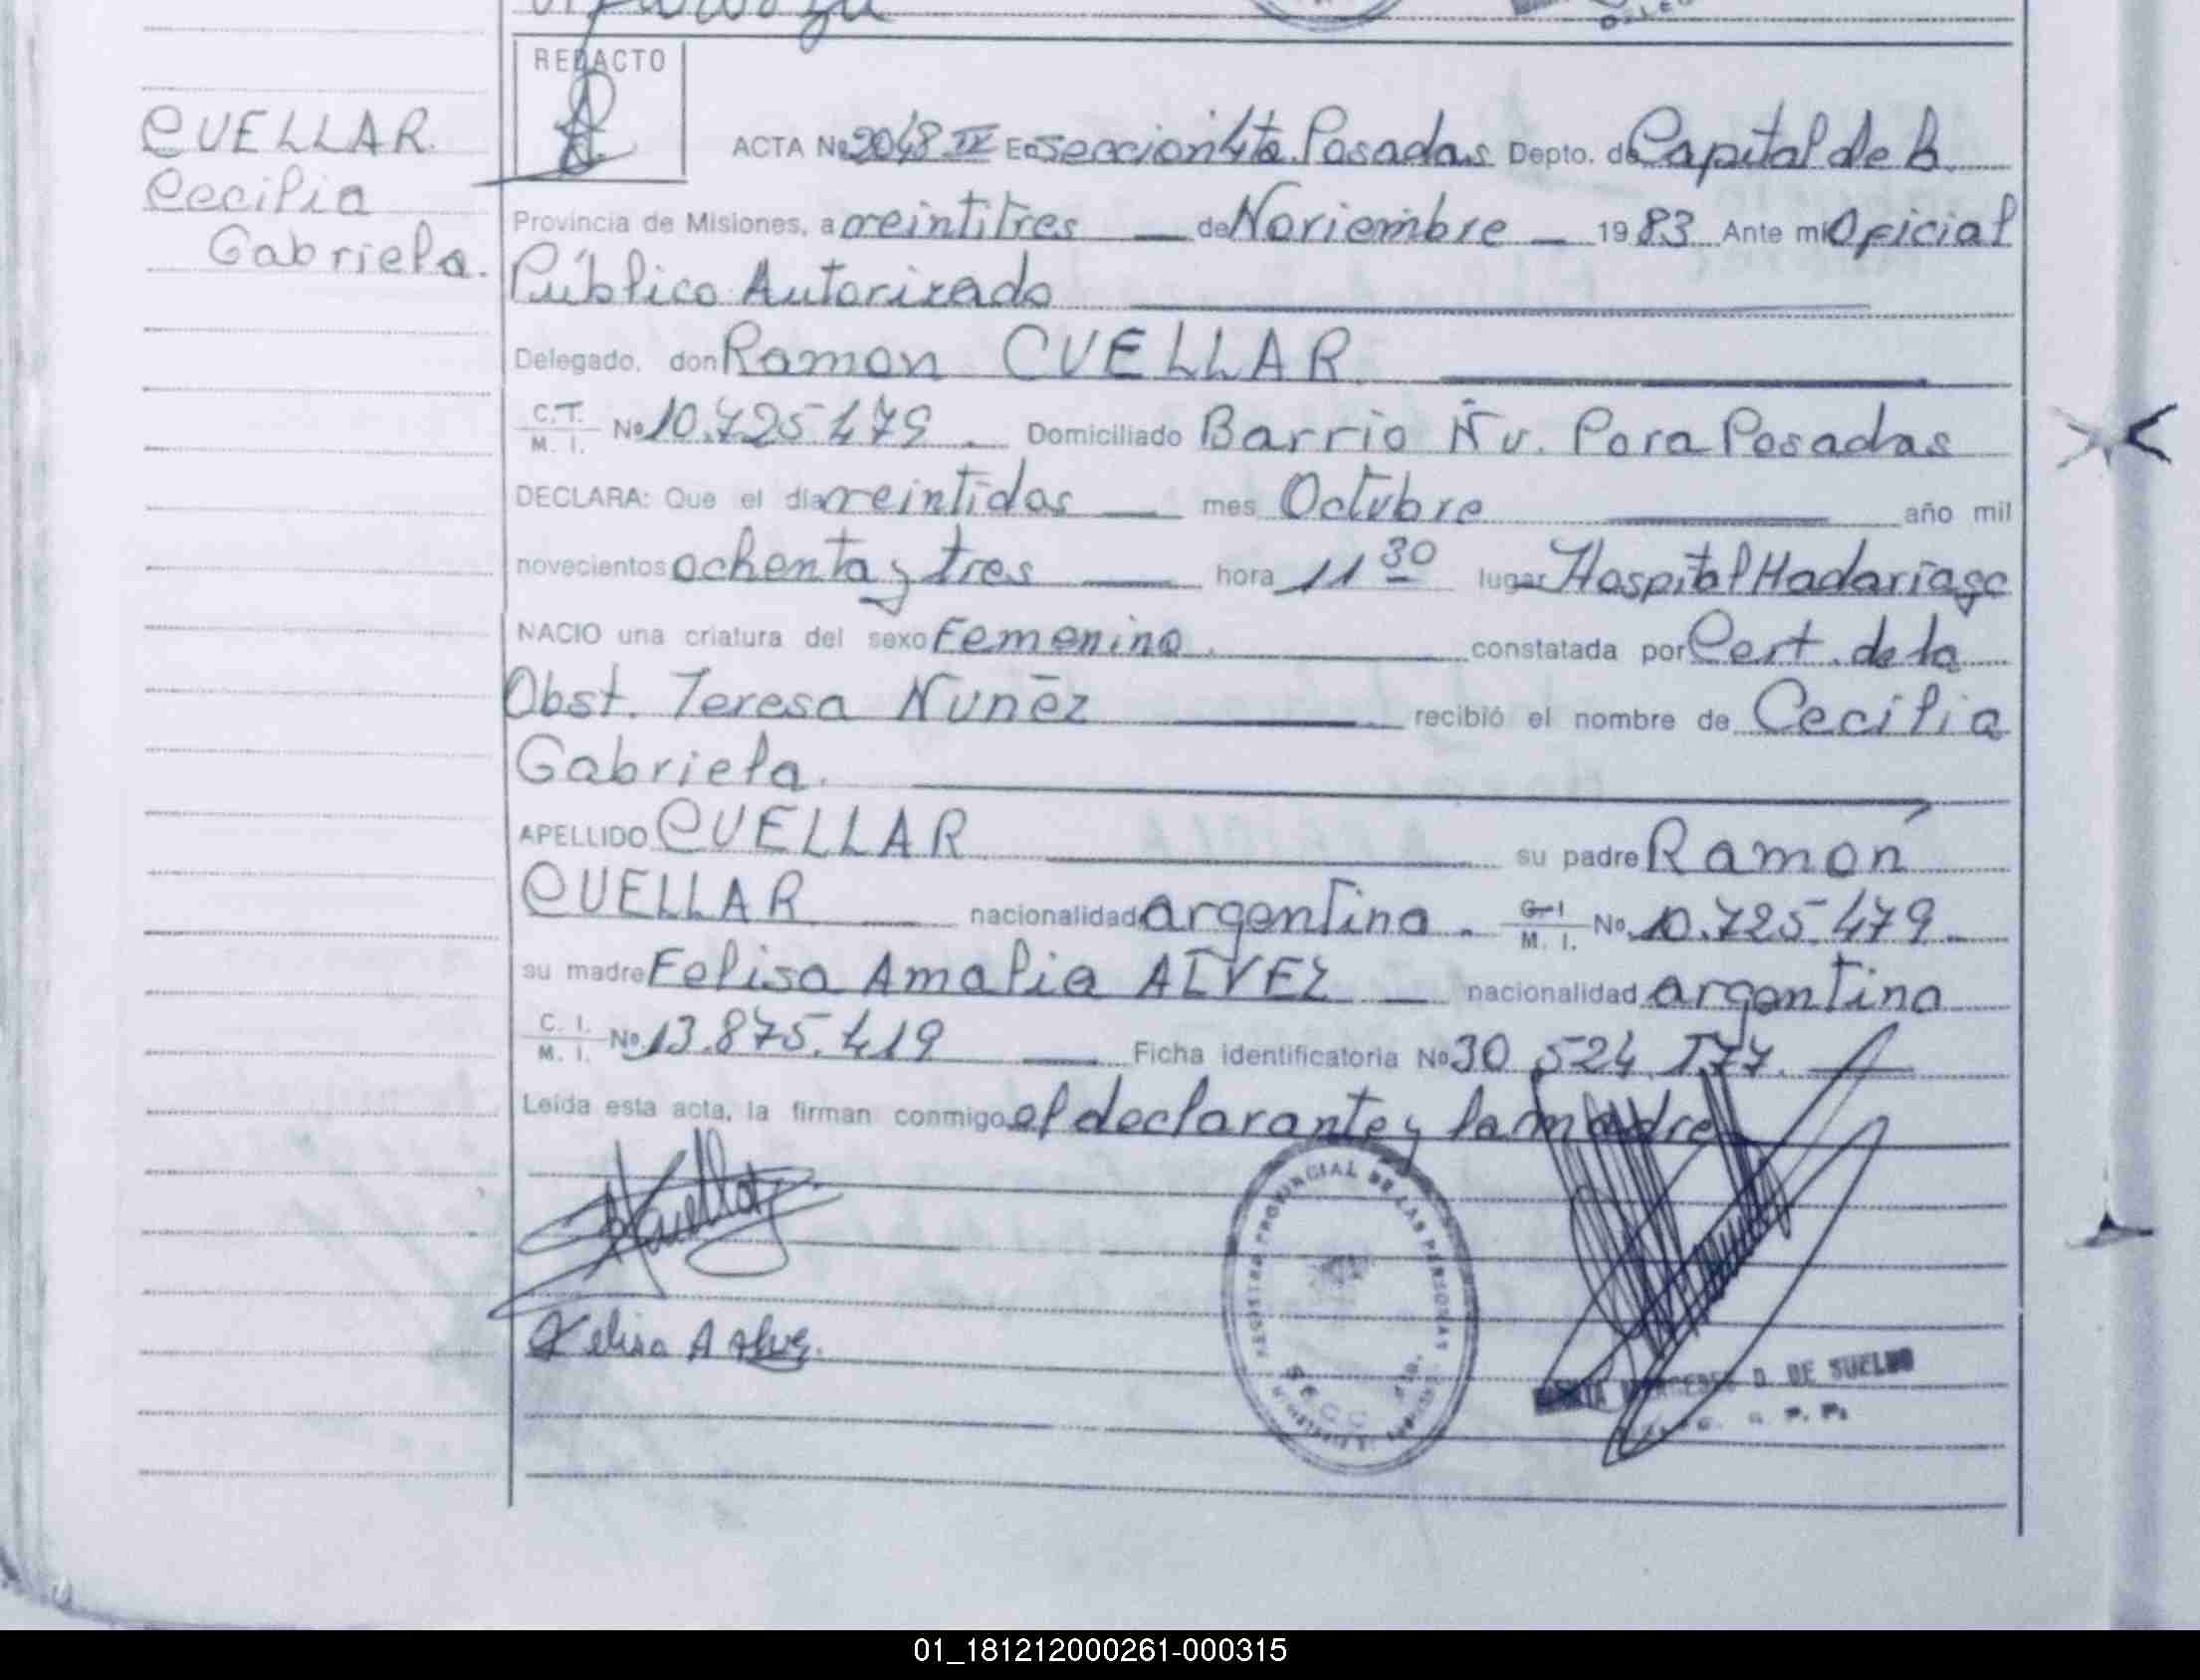 REDACTO
CUELLAR.
Cecilia
Gabriela.
ACTA Nº 2048 IV En Seccion 4ta. Posadas Depto. de Capital de la
Provincia de Misiones, a veintitres de Noviembre 1983 Ante mi Oficial
Público Autorizado
Delegado, don Ramon CUELLAR
C.T. M. I. Nº 10.725.479. Domiciliado Barrio Ñu. Pora Posadas
DECLARA: Que el día veintidos mes Octubre año mil
novecientos ochenta y tres hora 11 30 lugar Hospital Madariaga
NACIO una criatura del sexo Femenino. constatada por Cert. de la
Obst. Teresa Nuñez recibió el nombre de Cecilia
Gabriela.
APELLIDO CUELLAR su padre Ramón
CUELLAR nacionalidad argentina. M. I. No. 10.725.479.
su madre Felisa Amalia ALVEZ nacionalidad argentina
C. I. M. I. Nº 13.875.419 Ficha identificatoria Nº 30.524.577.
Leída esta acta, la firman conmigo el declarante y la madre
Cuellar
REGISTRO PROVINCIAL DE LAS PERSONAS
SECC.
Felisa A Alvez.
MERCEDES D. DE SUELDO
01_181212000261-000315